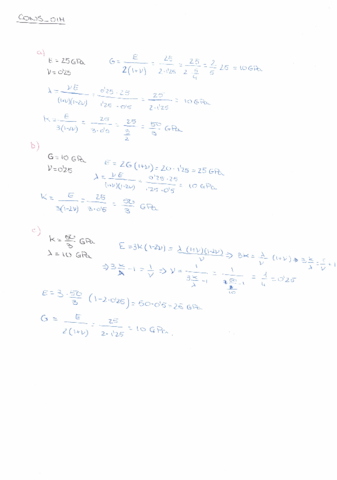 a)
E = 25 GPa
ν = 0'25
G = E / 2(1+ν) = 25 / 2·1'25 = 10 GPa
λ = νE / (1+ν)(1-2ν) = 0'25·25 / 1'25·0'5 = 25/2 = 10 GPa
k = E / 3(1-2ν) = 25 / 3·0'5 = 50/3 GPa
b)
G = 10 GPa
ν = 0'25
E = 2G(1+ν) = 20·1'25 = 25 GPa
λ = νE / (1+ν)(1-2ν) = 10 GPa
k = E / 3(1-2ν) = 25 / 3·0'5 = 50/3 GPa
c)
k = 50/3 GPa
λ = 10 GPa
E = 3k(1-2ν) = λ(1+ν)(1-2ν) / ν ⇒ 3k = λ/ν (1+ν)
⇒ 3k/λ - 1 = 1/ν ⇒ ν = 1 / (3k/λ - 1) = 1/4 = 0'25
E = 3·50/3 (1-2·0'25) = 50·0'5 = 25 GPa
G = E / 2(1+ν) = 25 / 2·1'25 = 10 GPa.